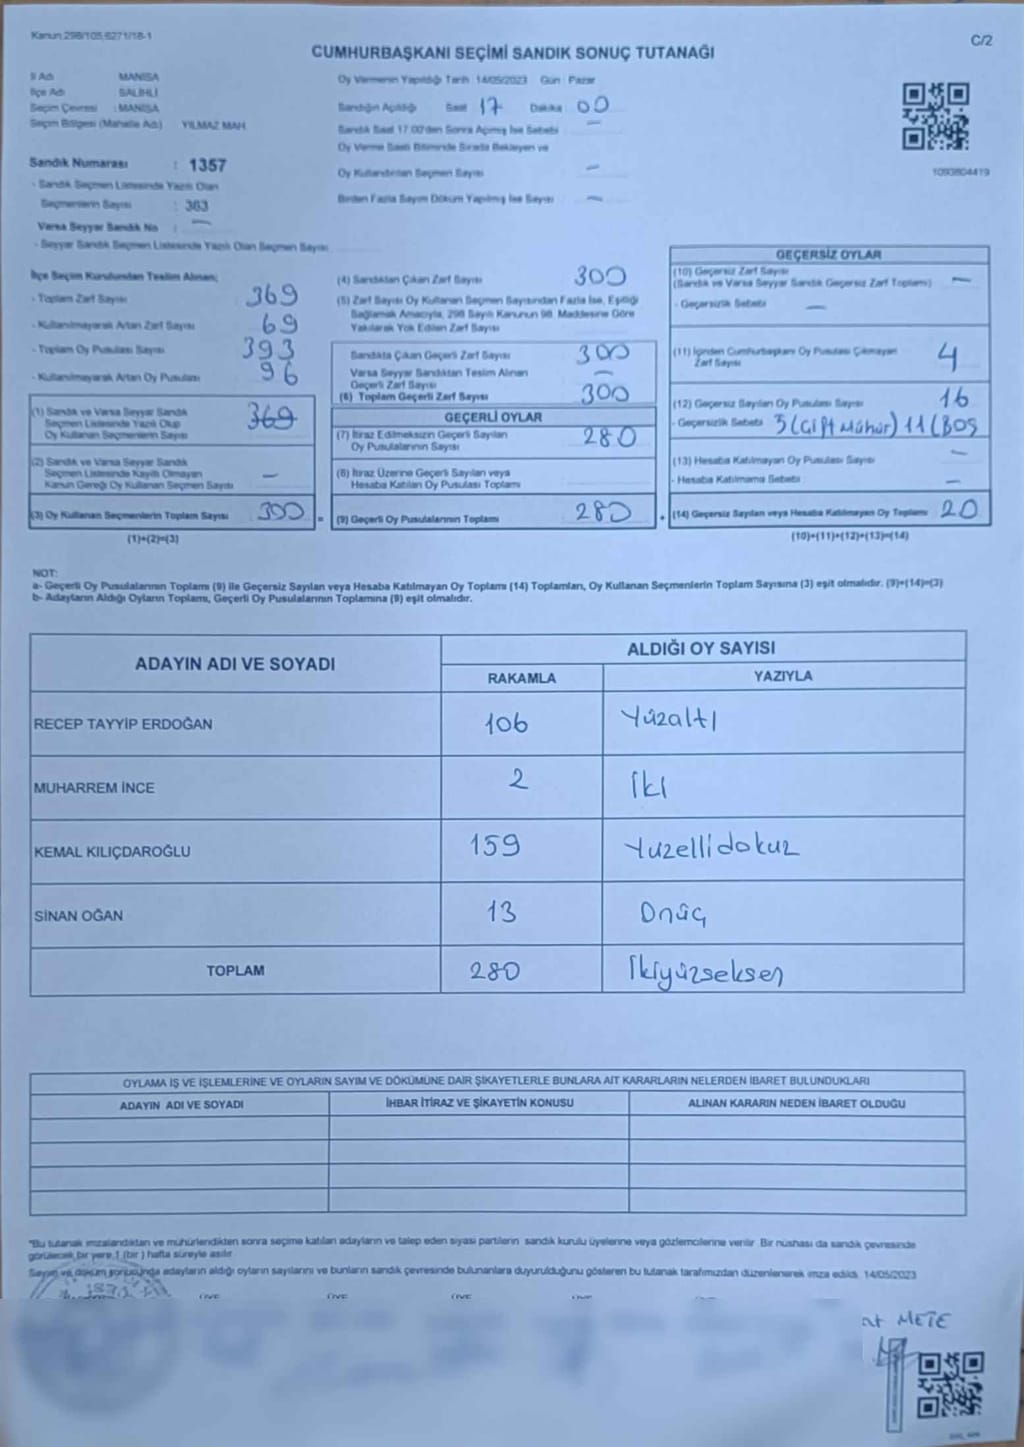 Kanun 298/105,6271/18-1
C/2
CUMHURBAŞKANI SEÇİMİ SANDIK SONUÇ TUTANAĞI
İl Adı MANİSA
İlçe Adı SALİHLİ
Seçim Çevresi : MANİSA
Seçim Bölgesi (Mahalle Adı) YILMAZ MAH.
Oy Vermenin Yapıldığı Tarih 14/05/2023 Gün : Pazar
Sandığın Açıldığı Saat 17 Dakika : 00
Sandık Saat 17.00'den Sonra Açılmış İse Sebebi —
Oy Verme Saati Bitiminde Sırada Bekleyen ve
Oy Kullandırılan Seçmen Sayısı —
Birden Fazla Sayım Döküm Yapılmış İse Sayısı —
1093804419
Sandık Numarası : 1357
- Sandık Seçmen Listesinde Yazılı Olan
Seçmenlerin Sayısı : 363
Varsa Seyyar Sandık No : —
- Seyyar Sandık Seçmen Listesinde Yazılı Olan Seçmen Sayısı
İlçe Seçim Kurulundan Teslim Alınan;
- Toplam Zarf Sayısı 369
- Kullanılmayarak Artan Zarf Sayısı 69
- Toplam Oy Pusulası Sayısı 393
- Kullanılmayarak Artan Oy Pusulası 96
(1) Sandık ve Varsa Seyyar Sandık
Seçmen Listesinde Yazılı Olup
Oy Kullanan Seçmenlerin Sayısı 369
(2) Sandık ve Varsa Seyyar Sandık
Seçmen Listesinde Kayıtlı Olmayan
Kanun Gereği Oy Kullanan Seçmen Sayısı —
(3) Oy Kullanan Seçmenlerin Toplam Sayısı 300 =
(1)+(2)=(3)
(4) Sandıktan Çıkan Zarf Sayısı 300
(5) Zarf Sayısı Oy Kullanan Seçmen Sayısından Fazla İse, Eşitliği
Sağlamak Amacıyla, 298 Sayılı Kanunun 98. Maddesine Göre
Yakılarak Yok Edilen Zarf Sayısı
Sandıkta Çıkan Geçerli Zarf Sayısı 300
Varsa Seyyar Sandıktan Teslim Alınan
Geçerli Zarf Sayısı —
(6) Toplam Geçerli Zarf Sayısı 300
GEÇERLİ OYLAR
(7) İtiraz Edilmeksizin Geçerli Sayılan
Oy Pusulalarının Sayısı 280
(8) İtiraz Üzerine Geçerli Sayılan veya
Hesaba Katılan Oy Pusulası Toplamı
(9) Geçerli Oy Pusulalarının Toplamı 280 +
GEÇERSİZ OYLAR
(10) Geçersiz Zarf Sayısı
(Sandık ve Varsa Seyyar Sandık Geçersiz Zarf Toplamı) —
- Geçersizlik Sebebi —
(11) İçinden Cumhurbaşkanı Oy Pusulası Çıkmayan
Zarf Sayısı 4
(12) Geçersiz Sayılan Oy Pusula Sayısı 16
- Geçersizlik Sebebi 5 (Çift Mühür) 11 (BOŞ
(13) Hesaba Katılmayan Oy Pusulası Sayısı —
- Hesaba Katılmama Sebebi : —
(14) Geçersiz Sayılan veya Hesaba Katılmayan Oy Toplamı 20
(10)+(11)+(12)+(13)=(14)
NOT:
a- Geçerli Oy Pusulalarının Toplamı (9) ile Geçersiz Sayılan veya Hesaba Katılmayan Oy Toplamı (14) Toplamları, Oy Kullanan Seçmenlerin Toplam Sayısına (3) eşit olmalıdır. (9)+(14)=(3)
b- Adayların Aldığı Oyların Toplamı, Geçerli Oy Pusulalarının Toplamına (9) eşit olmalıdır.
ADAYIN ADI VE SOYADI
ALDIĞI OY SAYISI
RAKAMLA YAZIYLA
RECEP TAYYİP ERDOĞAN 106 Yüzaltı
MUHARREM İNCE 2 İki
KEMAL KILIÇDAROĞLU 159 Yuzellidokuz
SİNAN OĞAN 13 Onüç
TOPLAM 280 İkiyüzseksen
OYLAMA İŞ VE İŞLEMLERİNE VE OYLARIN SAYIM VE DÖKÜMÜNE DAİR ŞİKAYETLERLE BUNLARA AİT KARARLARIN NELERDEN İBARET BULUNDUKLARI
ADAYIN ADI VE SOYADI İHBAR İTİRAZ VE ŞİKAYETİN KONUSU ALINAN KARARIN NEDEN İBARET OLDUĞU
*Bu tutanak imzalandıktan ve mühürlendikten sonra seçime katılan adayların ve talep eden siyasi partilerin sandık kurulu üyelerine veya gözlemcilerine verilir. Bir nüshası da sandık çevresinde
görülecek bir yere 1 (bir) hafta süreyle asılır.
Sayım ve döküm sonucunda adayların aldığı oyların sayılarını ve bunların sandık çevresinde bulunanlara duyurulduğunu gösteren bu tutanak tarafımızdan düzenlenerek imza edildi. 14/05/2023
ÜYE ÜYE ÜYE ÜYE ÜYE
at METE